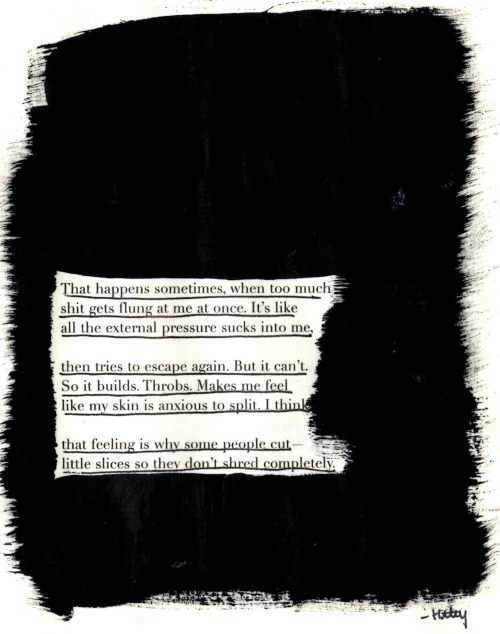 That happens sometimes, when too much
shit gets flung at me at once. It's like
all the external pressure sucks into me,
then tries to escape again. But it can't.
So it builds. Throbs. Makes me feel
like my skin is anxious to split. I think
that feeling is why some people cut—
little slices so they don't shred completely.